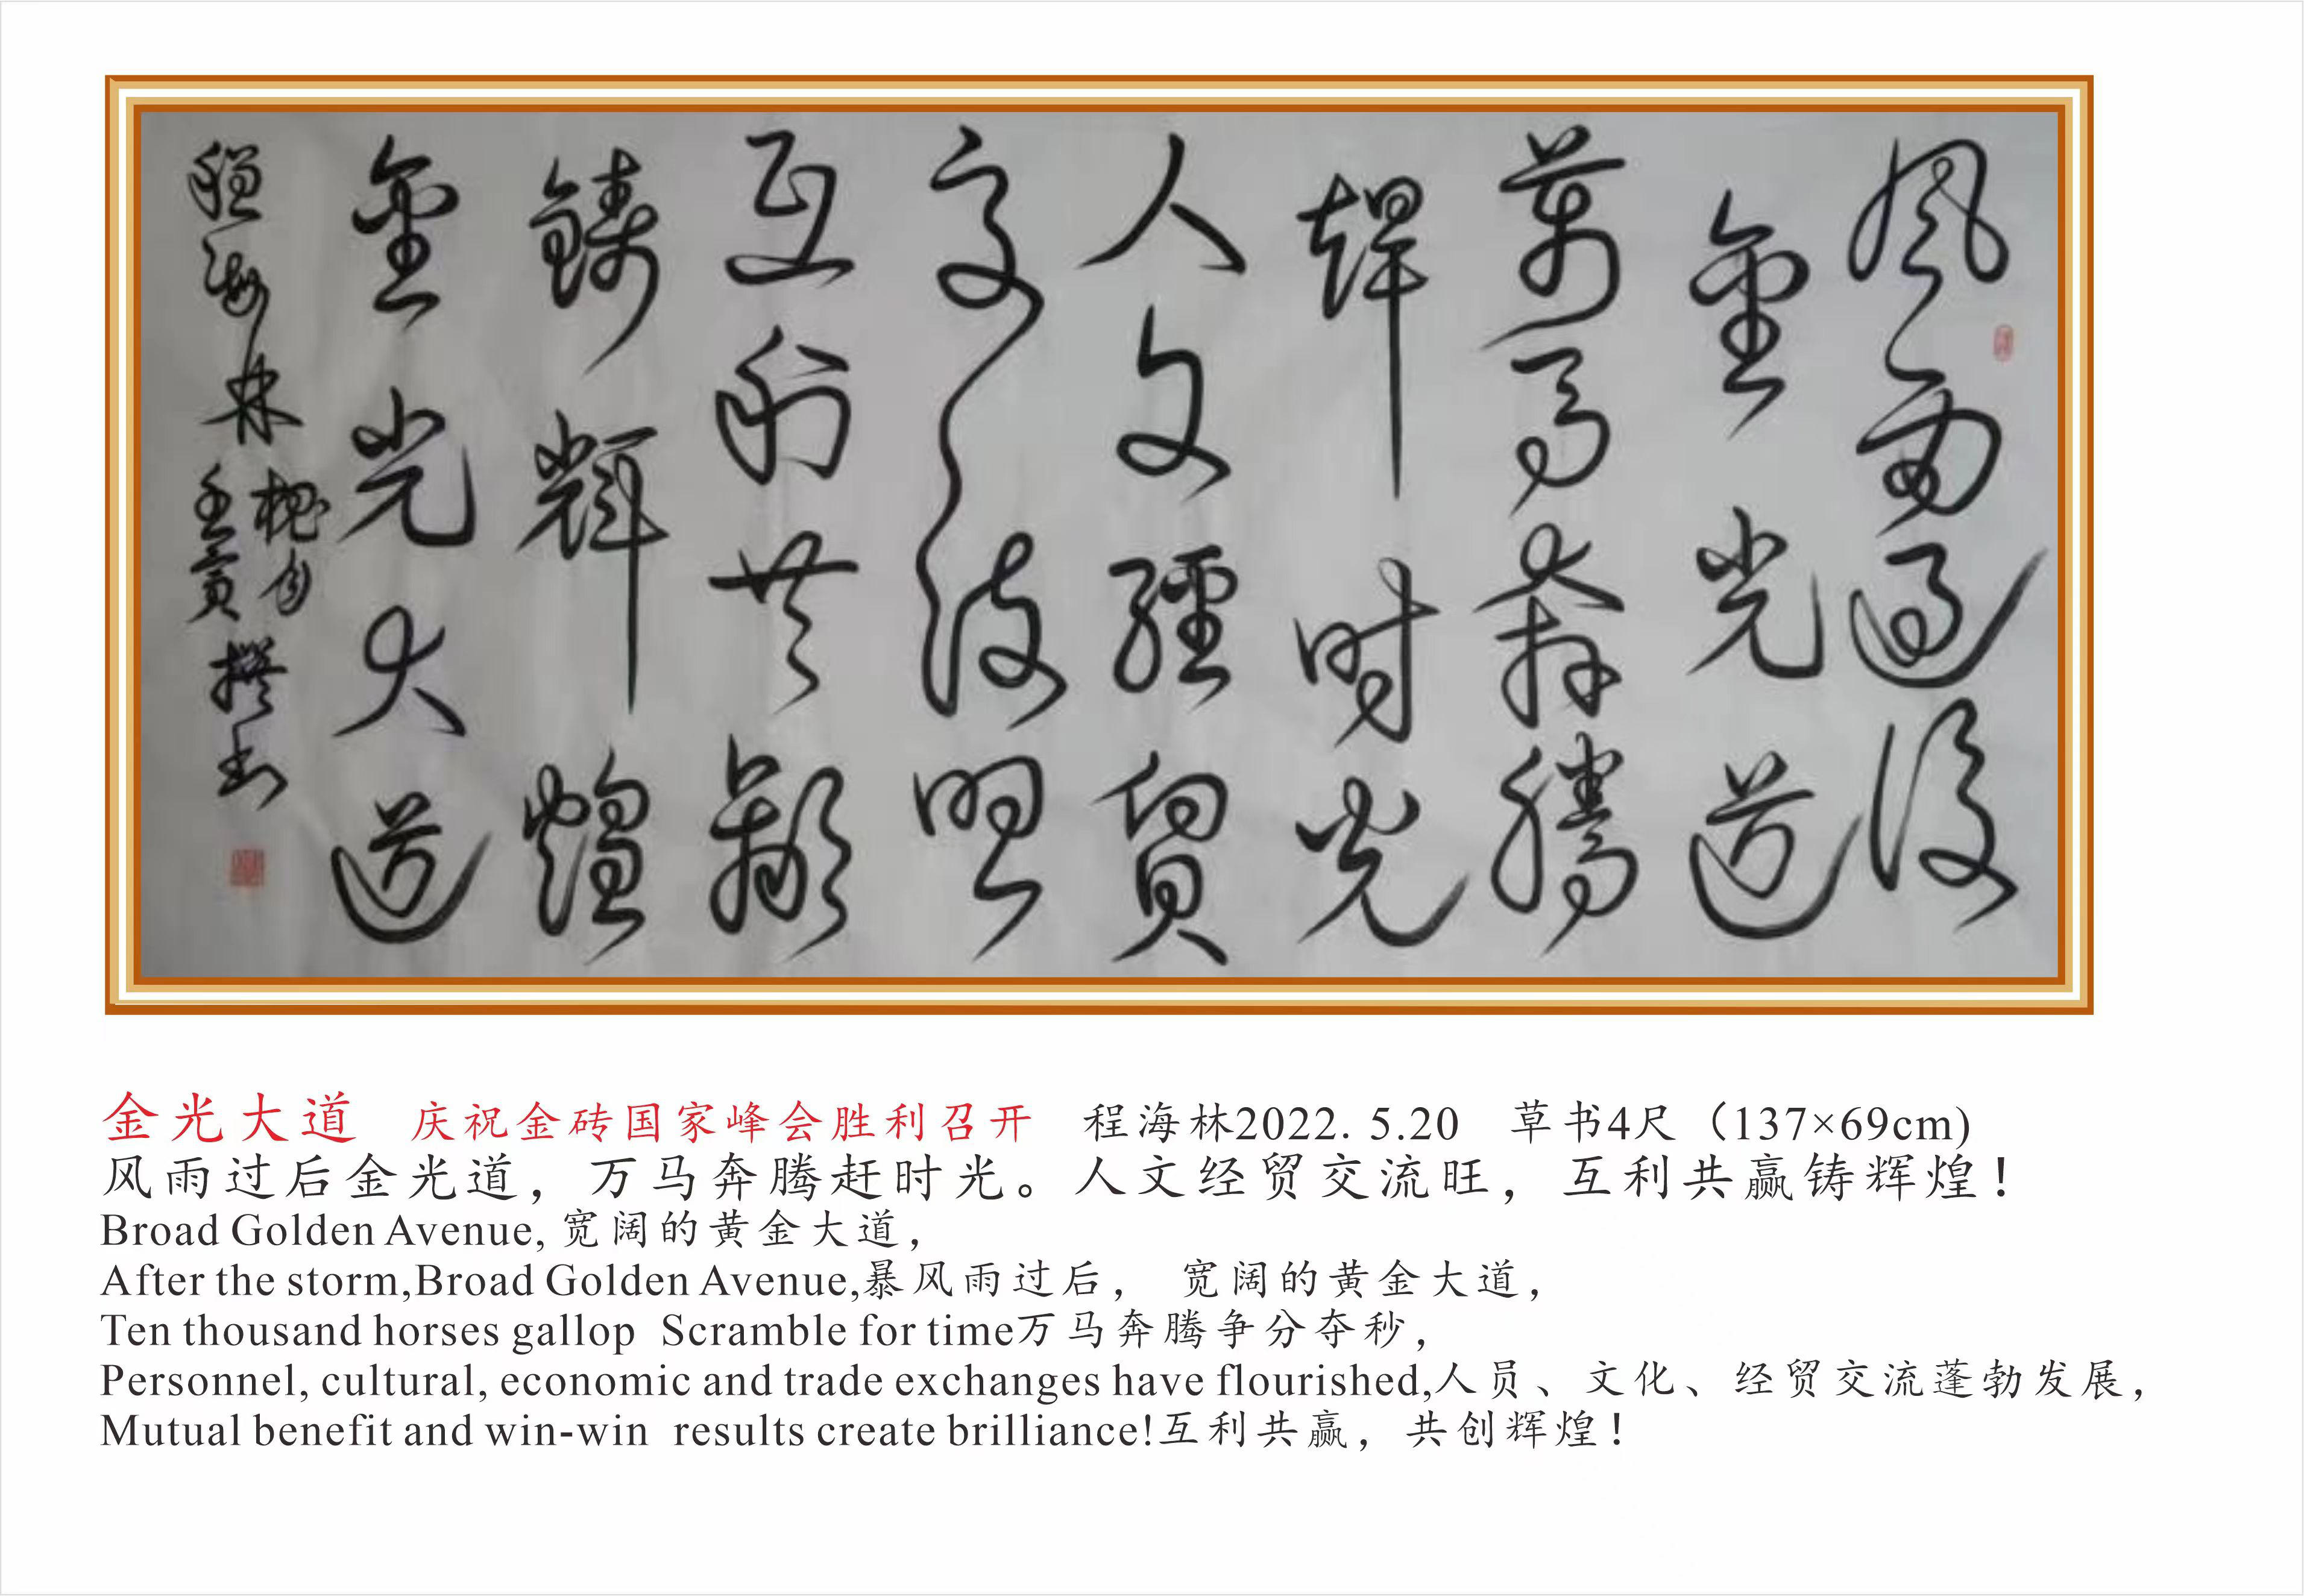 風雨過後
金光道
萬馬奔騰
趕时光
人文經貿
交流旺
互利共贏
鑄輝煌
金光大道
程海林
撰书
金光大道 庆祝金砖国家峰会胜利召开 程海林2022. 5.20 草书4尺（137×69cm)
风雨过后金光道，万马奔腾赶时光。人文经贸交流旺，互利共赢铸辉煌！
Broad Golden Avenue, 宽阔的黄金大道，
After the storm,Broad Golden Avenue,暴风雨过后， 宽阔的黄金大道，
Ten thousand horses gallop Scramble for time万马奔腾争分夺秒，
Personnel, cultural, economic and trade exchanges have flourished,人员、文化、经贸交流蓬勃发展，
Mutual benefit and win-win results create brilliance!互利共赢，共创辉煌！